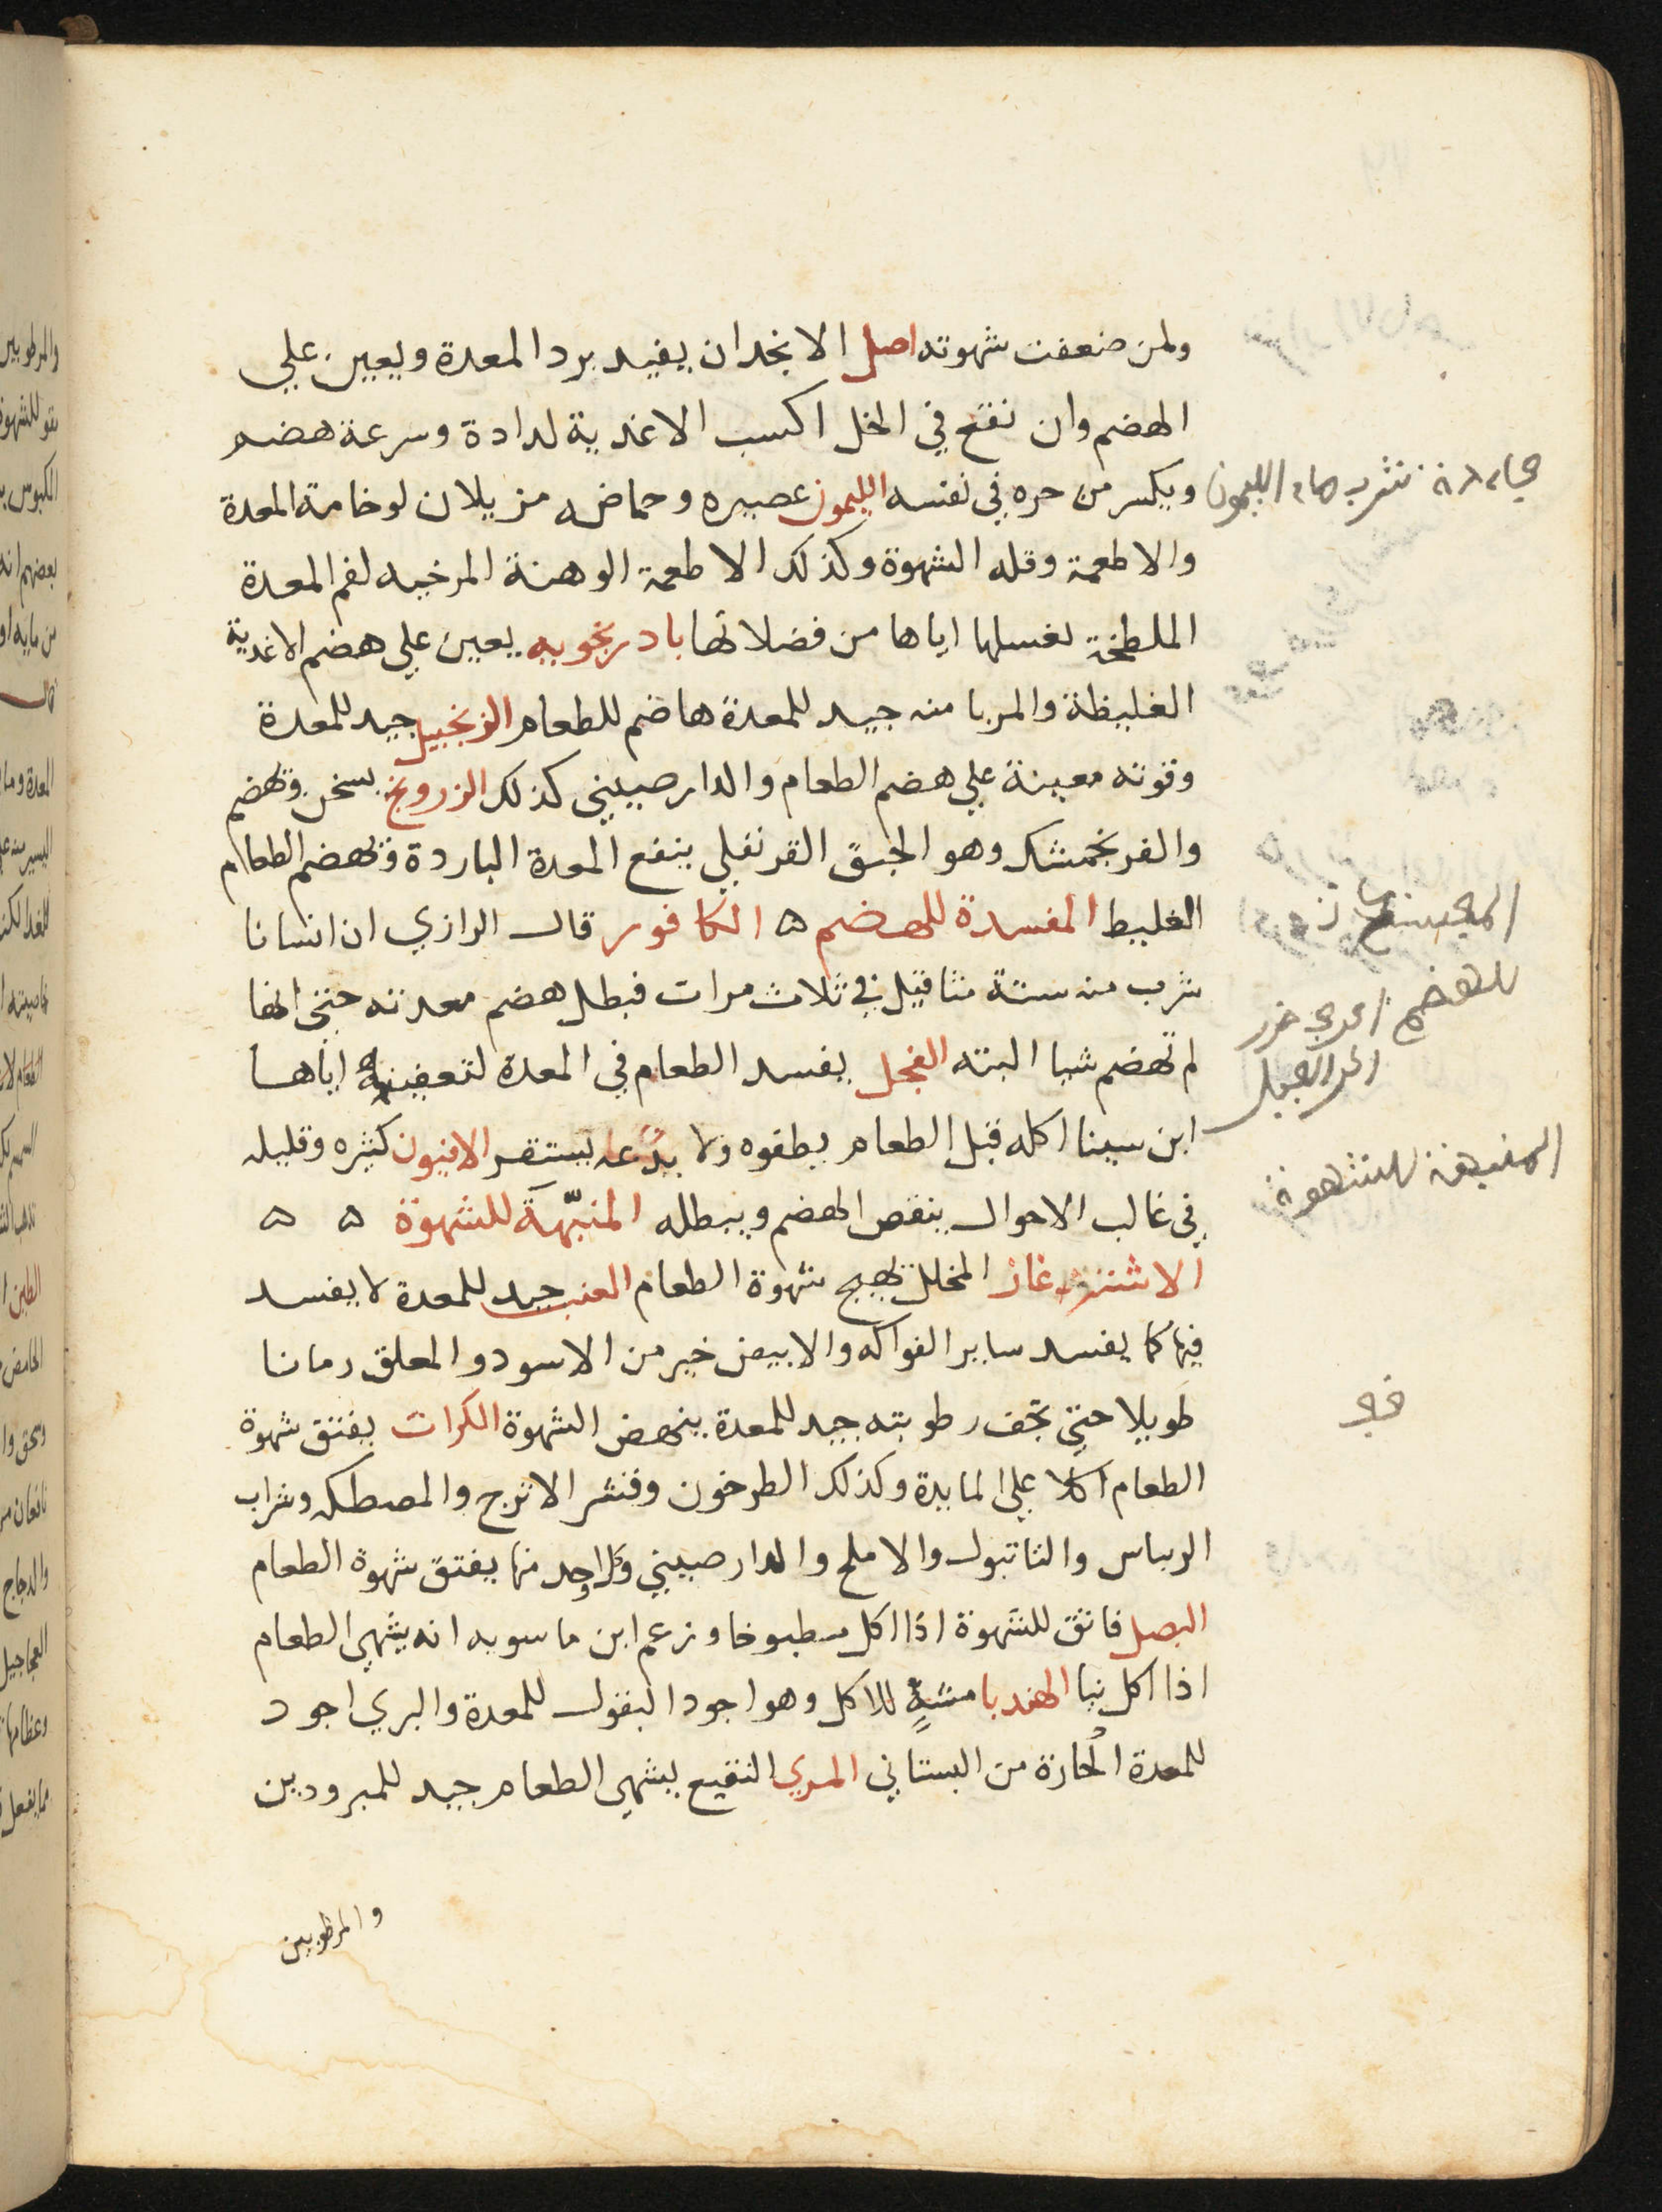 ولمن ضعفت شهوته اصل الانجدان يفيد برد المعدة ويعين علي
الهضم وان نقع في الخل اكسب الاغدية لدادة وسرعة هضم
ويكسر من حره في نفسه الليمون عصيره وحماضه مزيلان لوخامة المعدة
والاطعمة وقله الشهوة وكذلك الاطعمة الوهنة المرخيه لفم المعدة
الملطخة لغسلها اياها من فضلاتها بادرنجويه يعين علي هضم الاغدية
الغليظة والمربا منه جيد للمعدة هاضم للطعام الزنجبيل جيد للمعدة
وقوته معينة علي هضم الطعام والدارصيني كذلك الزرونج يسخن وتهضم
والفرنجمشك وهو الحبق القرنفلي ينفع المعدة الباردة وتهضم الطعام
الغليط المفسدة للهضم ه الكافور قال الرازي ان انسانا
شرب منه ستة مثاقيل في ثلاث مرات فبطل هضم معدته حتي انها
لم تهضم شيا البته الفجل يفسد الطعام في المعدة لتعفينه اياها
ابن سينا اكله قبل الطعام يطفوه ولا يدعه يستقر الافيون كثيره وقليله
في غالب الاحوال ينقص الهضم ويبطله المنبّهة للشهوة ه ه
الاشترغاز المخلل يهيج شهوة الطعام العنب جيد للمعدة لا يفسد
فيها كما يفسد ساير الفواكه والابيض خير من الاسود والمعلق زمانا
طويلا حتي تجف رطوبته جيد للمعدة ينهض الشهوة الكرات يفتق شهوة
الطعام اكلا علي المايدة وكذلك الطرخون وقشر الاترج والمصطكه وشراب
الريباس والثانبول والاملج والدارصيني وكل واحد منها يفتق شهوة الطعام
البصل فاتق للشهوة اذا اكل مطبوخا وزعم ابن ماسويه انه يشهي الطعام
اذا اكل نيا الهندبا مشهٍ للاكل وهو اجود البقول للمعدة والبري اجود
للمعدة الحارة من البستاني المري النقيع يشهي الطعام جيد للمبرودين
والمرطوبين
نشرب ماء الليمون
للهضم
المنبهة للشهوة